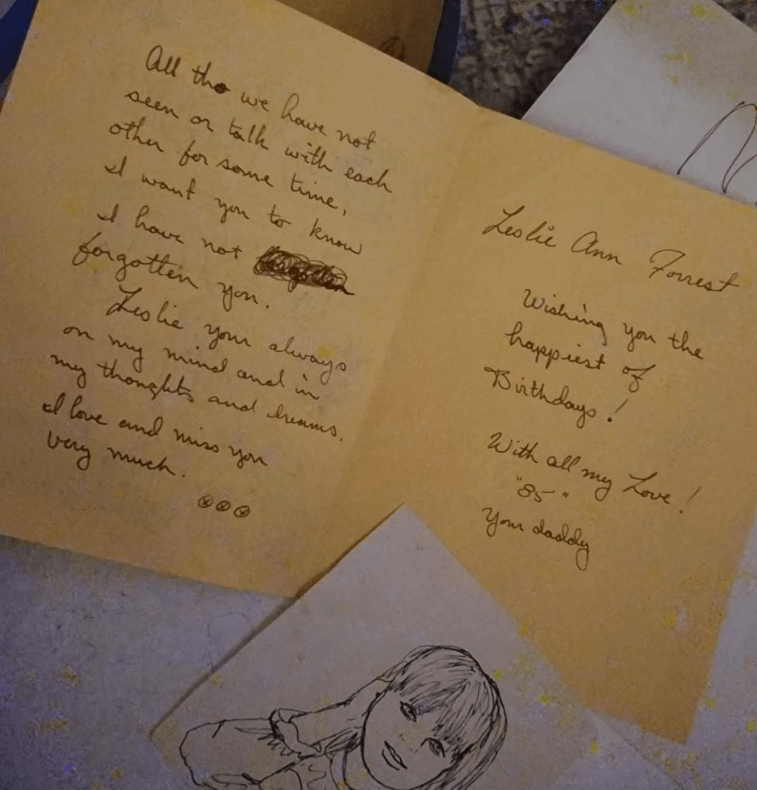 All tho we have not
seen or talk with each
other for some time,
I want you to know
I have not
forgotten you.
Leslie your always
on my mind and in
my thoughts and dreams.
I love and miss you
very much.
Leslie Ann Forrest
Wishing you the
happiest of
Birthdays!
With all my Love!
"85"
Your daddy